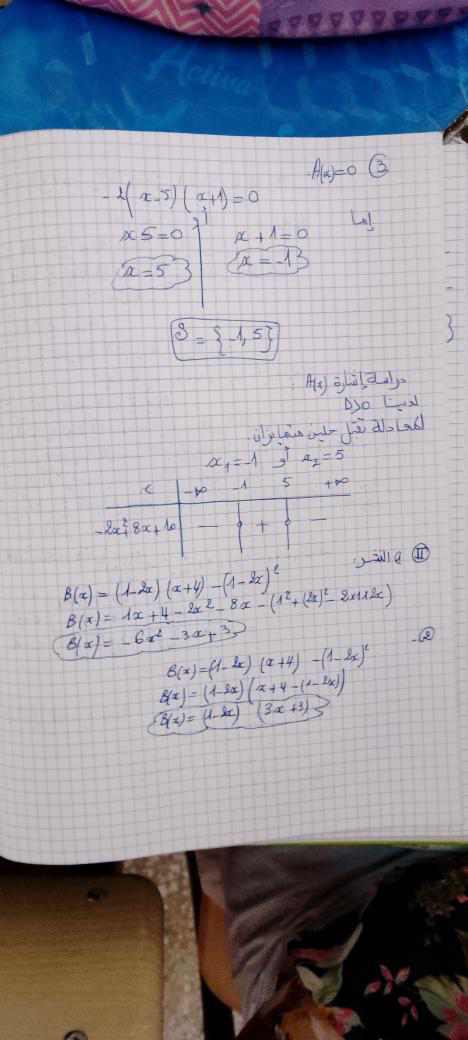 Activa
③ A(x)=0
-2(x-5)(x+1)=0
إما x+1=0 أو x5=0
x=-1 x=5
S={-1,5}
دراسة إشارة A(x):
لدينا Δ>0
المعادلة تقبل حلين متمايزان.
x₁=-1 أو x₂=5
x -∞ -1 5 +∞
-2x²+8x+10 — 0 + 0 —
II
B(x)=(1-2x)(x+4)-(1-2x)²
B(x)=1x+4-2x²-8x-(1²+(2x)²-2×1×2x)
B(x)=-6x²-3x+3
2-
B(x)=(1-2x)(x+4)-(1-2x)²
B(x)=(1-2x)(x+4-(1-2x))
B(x)=(1-2x)(3x+3)